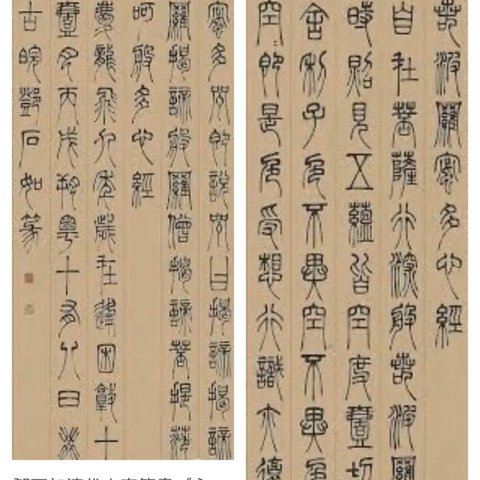 若波羅蜜多心經
自在菩薩行深般若波羅
時照見五蘊皆空度壹切
舍利子色不異空不異色
空即是色受想行識亦復
蜜多呪即說呪曰揭諦揭諦
羅揭諦般羅僧揭諦菩提薩
呵般多心經
慶龍飛九年歲在逢困敦十
壹月丙戌朔粵十有八日
古皖鄧石如篆